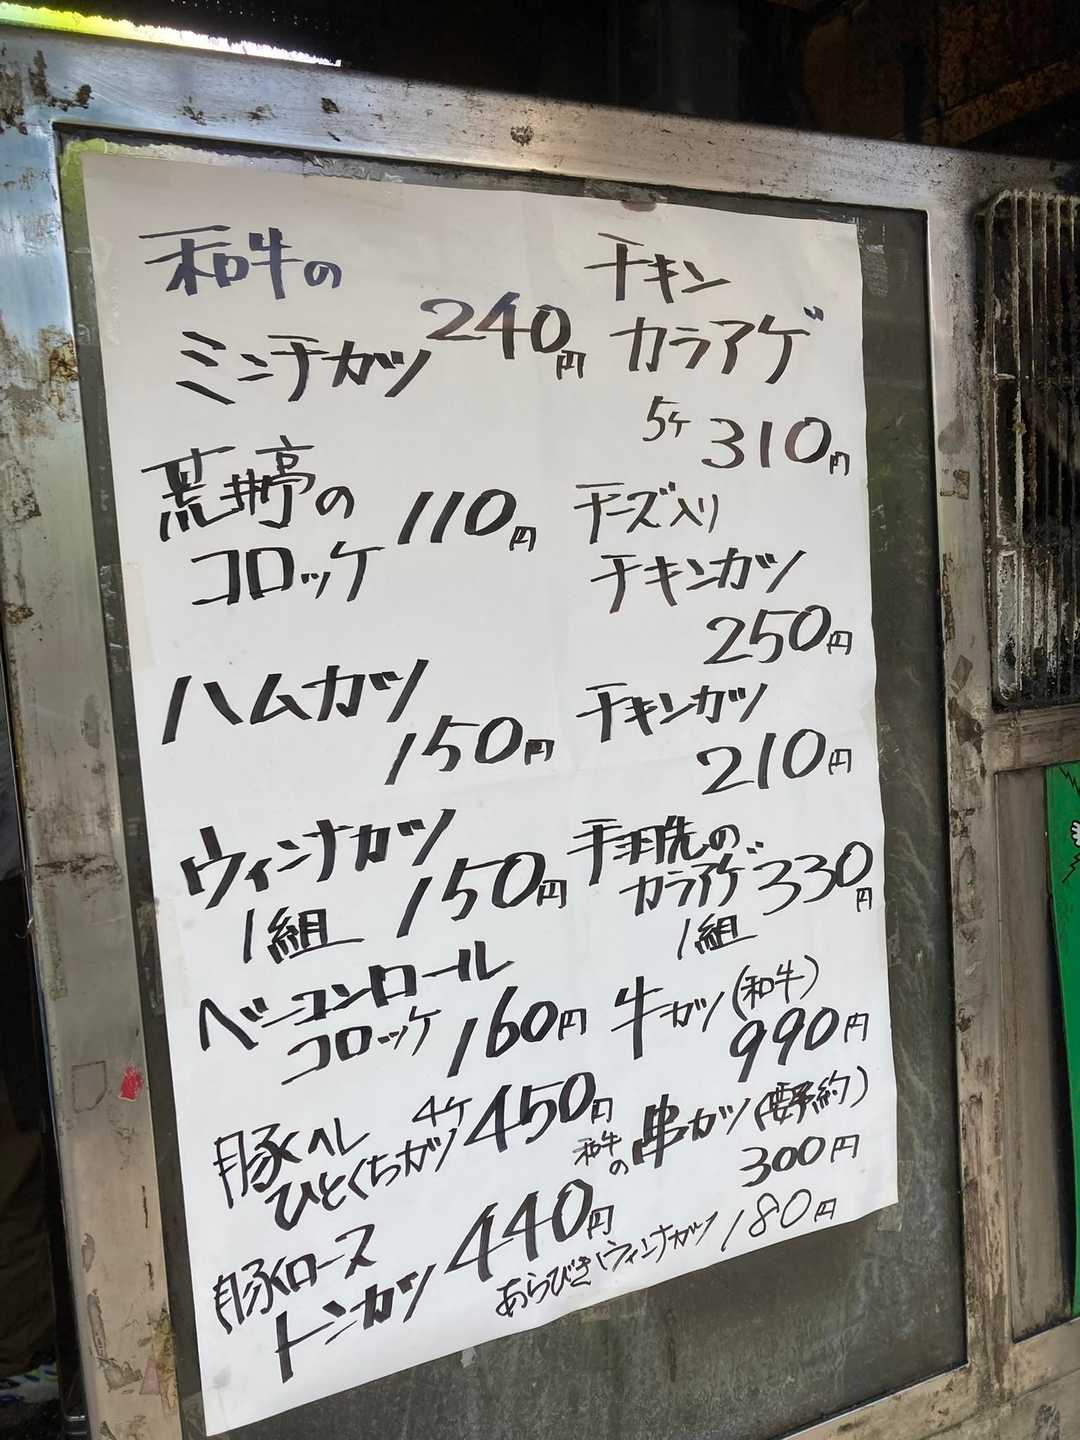 和牛の
ミンチカツ 240円
荒井亭の
コロッケ 110円
ハムカツ
150円
ウィンナカツ
1組 150円
ベーコンロール
コロッケ 160円
豚ヘレ 4ケ
ひとくちカツ 450円
豚ロース
トンカツ 440円
チキン
カラアゲ
5ケ 310円
チーズ入り
チキンカツ
250円
チキンカツ
210円
手羽先の
カラアゲ 330円
1組
牛カツ(和牛)
990円
和牛の 串カツ(要予約)
300円
あらびきウィンナカツ 180円